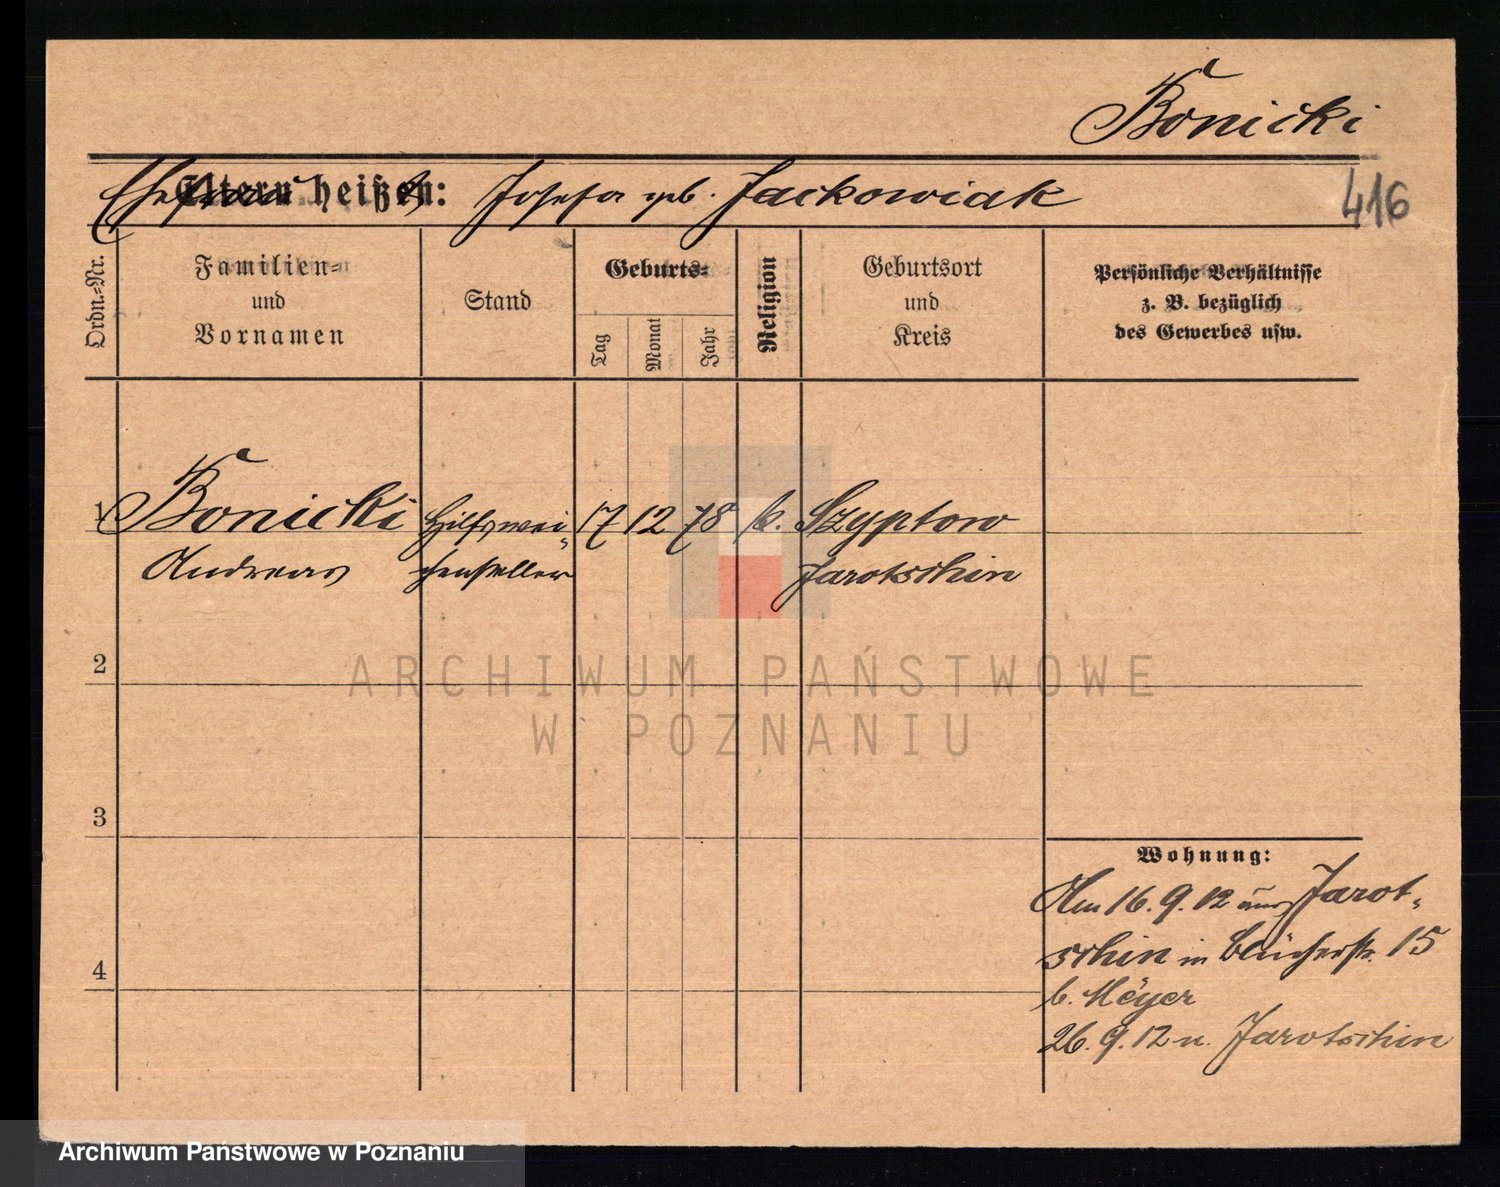 Bonicki
Eltern heißen: Ehefrau Josefa geb. Jackowiak
416
Ordn.-Nr.
Familien-
und
Vornamen
Stand
Geburts-
Tag
Monat
Jahr
Religion
Geburtsort
und
Kreis
Persönliche Verhältnisse
z. B. bezüglich
des Gewerbes usw.
1 Bonicki Hilfswei- 17 12 78 k. Szyptow
Andreas chensteller Jarotschin
2
3
4
Wohnung:
Am 16. 9. 12 aus Jarot-
schin in Blücherstr. 15
b. Meyer
26. 9. 12 n. Jarotschin
ARCHIWUM PAŃSTWOWE
W POZNANIU
Archiwum Państwowe w Poznaniu